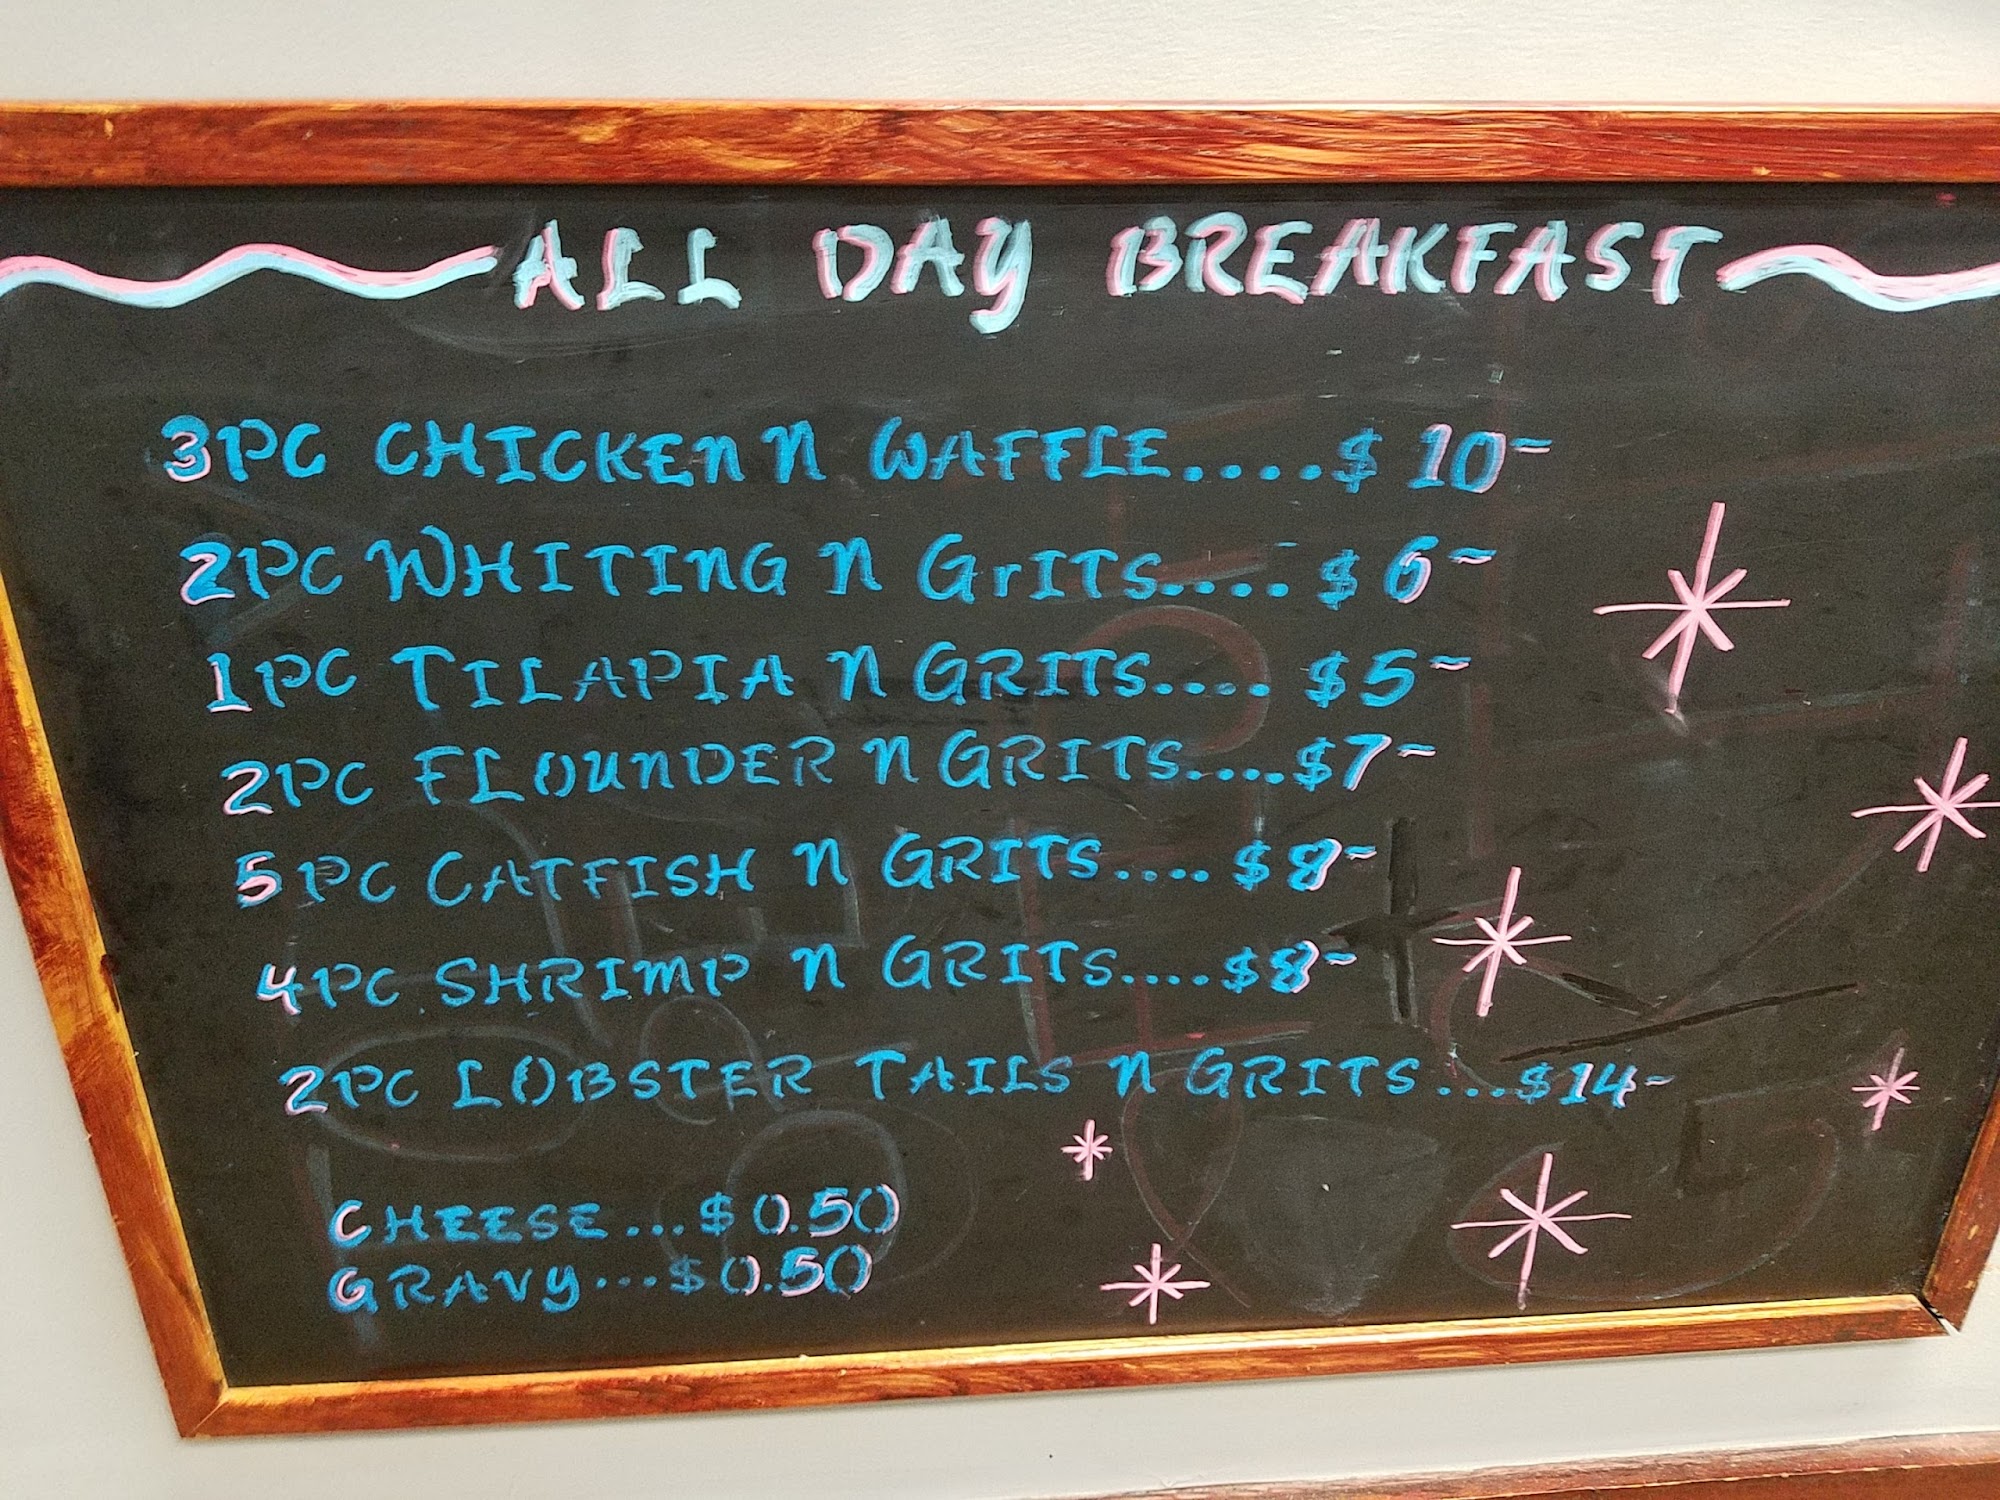 ALL DAY BREAKFAST
3PC CHICKEN N WAFFLE....$10~
2PC WHITING N GrITS....$6~
1PC TILAPIA N GRITS....$5~
2PC FLOUNDER N GRITS....$7~
5PC CATFISH N GRITS....$8~
4PC SHRIMP N GRITS....$8~
2PC LOBSTER TAILS N GRITS...$14~
CHEESE...$0.50
GRAVY...$0.50